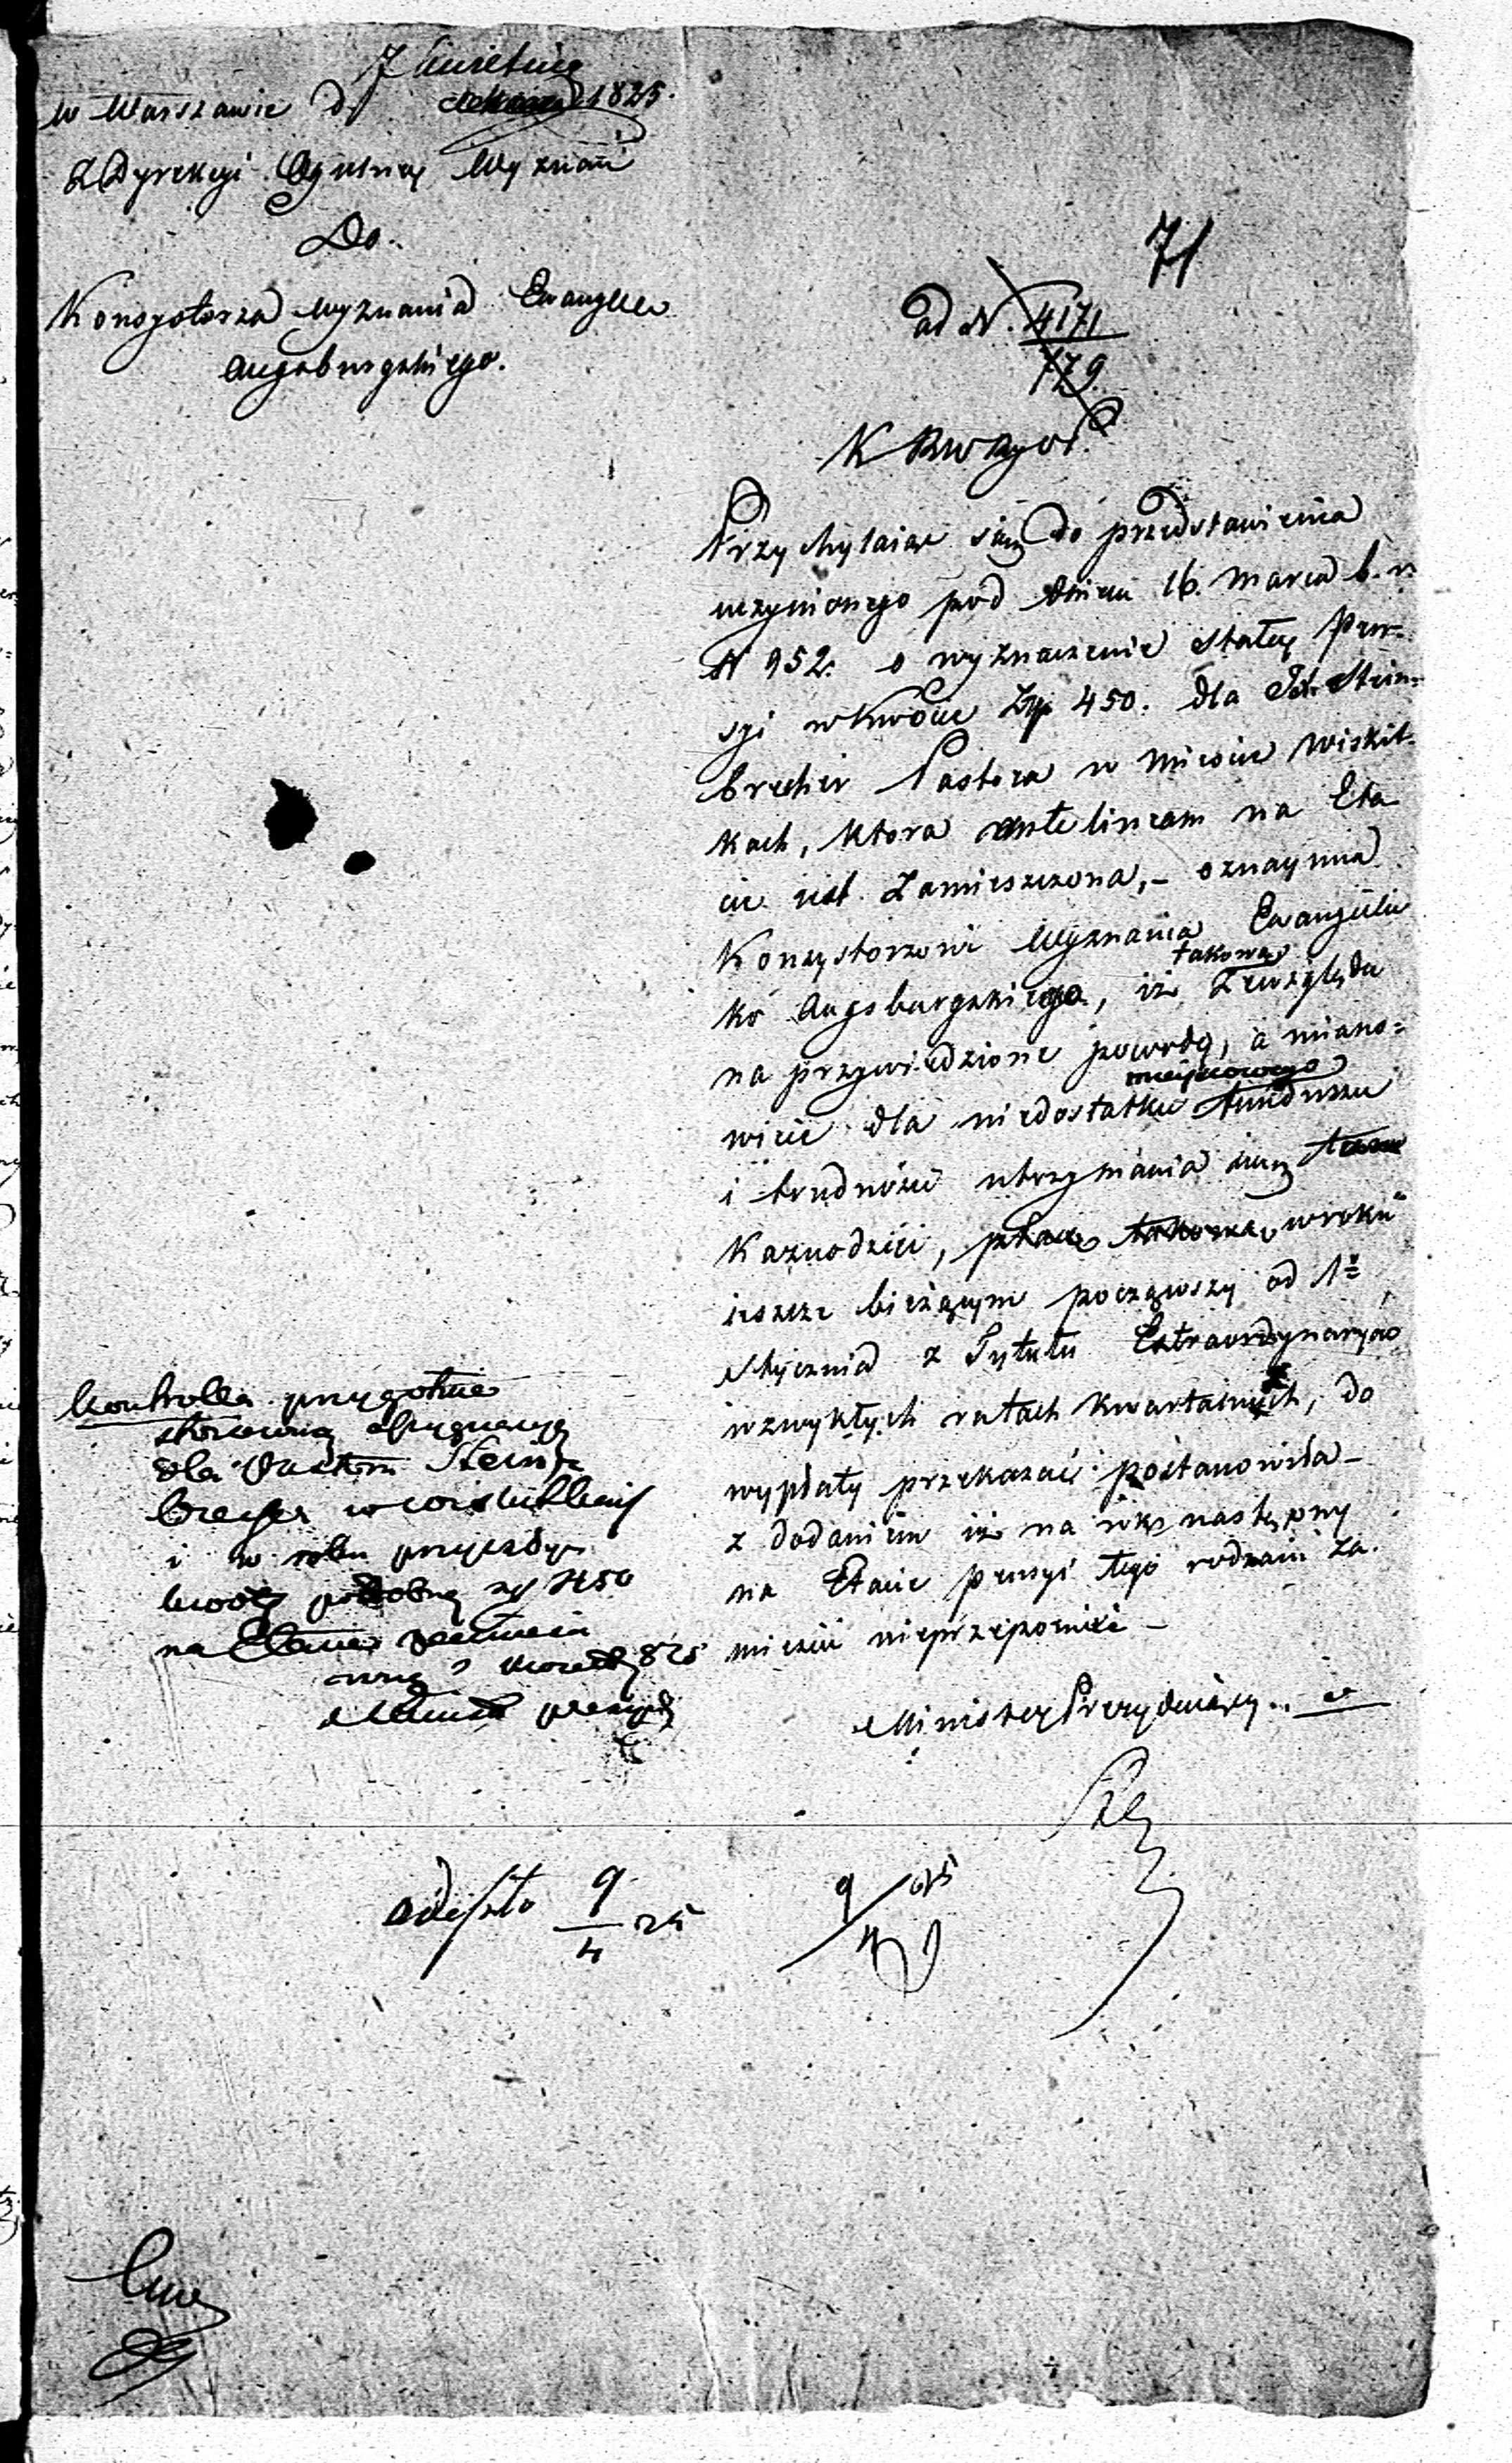 7 Kwietnia
w Warszawie d. 1825.
Z Dyrekcyi Ogulney Wyznań
Do.
Konsystorza wyznania Ewangelic
Augsburgskiego.
71
ad N. 4171
729.
K Rw Ryw.
Przychylaiąc się do przedstawienia
uczynionego pod dniem 16. marca b. r.
N 952. o wyznaczenie stałey Pen-
syi w kwocie Złp 450. dla Stein-
brecher Pastora w mieście Wiskit-
kach, ktora ante lineam na Eta
cie iest zamieszczona,- oznaymia
Konsystorzowi Wyznania Ewangelic
ko Augsburgskiego, iż takową zewzględu
na przywiedzione powody, a miano=
wicie dla niedostatku mieyscowego funduszu
i trudności utrzymania się
Kaznodziei, płacę takową w roku
ieszcze bieżącym począwszy od 1º
Stycznia z Tytułu Extraordynaryów
w zwykłych ratach kwartalnych, do
wypłaty przekazać postanowiła -
z dodaniem iż na rok następny
na Etacie pensyi tego rodzaiu za.
mieścić nieprzepomni -
Minister Prezyduiący..
Kontrolla przygotuie
stosowną assygnacyą
dla Pastora Stein
brecher w Wiskitkach
i w roku przyszłym
kwotę podobną zł 450
na Etacie zamieści
825
Minister prezyd
odeszło 9/4 25
9/4 825